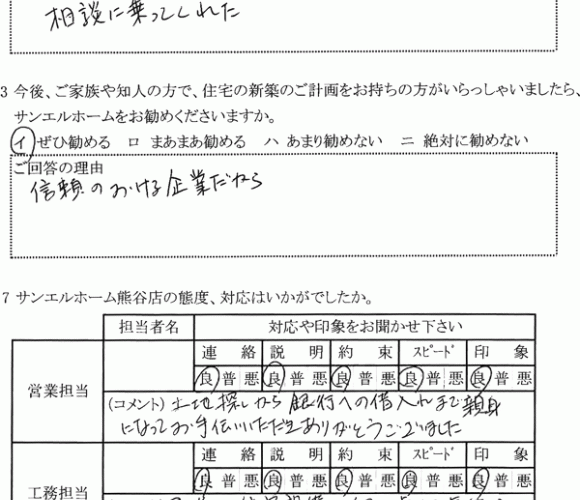 相談に乗ってくれた
3 今後、ご家族や知人の方で、住宅の新築のご計画をお持ちの方がいらっしゃいましたら、
サンエルホームをお勧めくださいますか。
イ ぜひ勧める ロ まあまあ勧める ハ あまり勧めない ニ 絶対に勧めない
ご回答の理由
信頼のおける企業だから
7 サンエルホーム熊谷店の態度、対応はいかがでしたか。
担当者名 対応や印象をお聞かせ下さい
連絡 説明 約束 スピード 印象
営業担当 良 普 悪 良 普 悪 良 普 悪 良 普 悪 良 普 悪
(コメント) 土地探しから 銀行への借入れまで親身
になってお手伝いいただきありがとうございました
連絡 説明 約束 スピード 印象
工務担当 良 普 悪 良 普 悪 良 普 悪 良 普 悪 良 普 悪